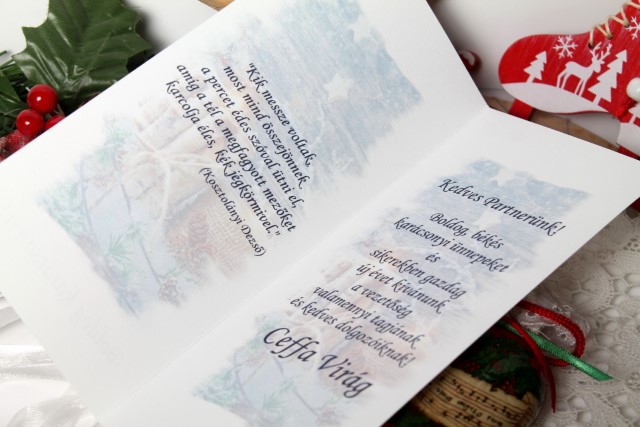 "Kik messze voltak,
most mind összejönnek
a percet édes szóval ütni el,
amíg a tél a megfagyott mezőket
karcolja éles, kék jégkörmivel."
(Kosztolányi Dezső)
Kedves Partnerünk!
Boldog, békés
karácsonyi ünnepeket
és
sikerekben gazdag
új évet kívánunk
a vezetőség
valamennyi tagjának
és kedves dolgozóiknak!
Ceffa Virág